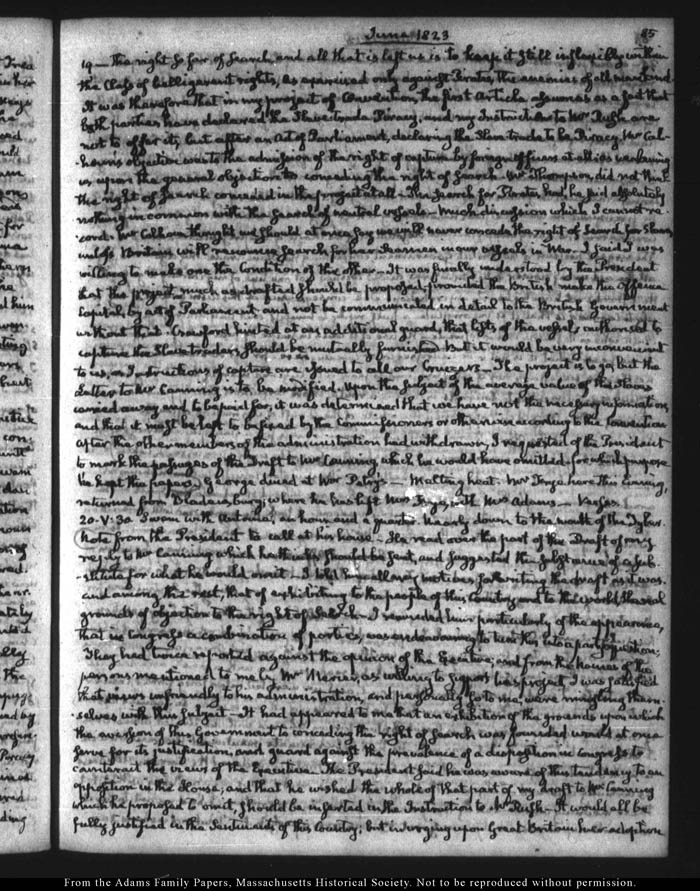 June 1823
85
19 — The right so far of Search, and all that is left us is to keep it still inflexibly within
the Class of belligerent rights, as exercised only against Pirates, the enemies of all mankind.
It was therefore that in my project of Convention, the first Article assumes as a fact that
both parties have declared the Slave trade Piracy, and my Instructions to Mr Rush are
not to offer it, but after an Act of Parliament, declaring the Slave trade to be Piracy. Mr Cal-
houn's objection was to the admission of the right of capture by foreign officers at all as weakening
us upon the general objection to conceding the right of Search. Mr Thompson, did not think
the right of Search conceded in the project at all. The Search for Pirates had he said absolutely
nothing in common with the Search of neutral vessels — Much discussion which I cannot re-
cord. Mr Calhoun thought we should at once say we will never concede the right of Search for Slaves,
unless Britain will renounce Search for her Seamen in our vessels in War. I said I was
willing to make one the Condition of the other — It was finally understood by the President
that the project much as drafted should be proposed, provided the British make the offence
Capital, by act of Parliament and not be communicated in detail to the British Government
without that. Crawford hinted at an additional guard, that lists of the vessels authorised to
capture the Slave traders should be mutually furnished. But it would be very inconvenient
to us, as Instructions of capture are issued to all our Cruizers — The project is to go, but the
Letter to Mr Canning is to be modified. Upon the subject of the average value of the Slaves
carried away and to be paid for, it was determined that we have not the necessary information,
and that it must be left to be fixed by the Commissioners or otherwise according to the Convention
After the other members of the administration had withdrawn, I requested of the President
to mark the passages of the Draft to Mr Canning, which he would have omitted, for which purpose
he kept the papers. George dined at Mr Petry's — Melting heat. Mr Frye here this evening,
returned from Bladensburg, where he has left Mrs Frye, with Mrs Adams —
20. V:30 Swam with Antoine, an hour and a quarter. Nearly down to the mouth of the Tyber.
Note from the President to call at his house. He read over the part of the Draft of my
reply to Mr Canning which he thinks should be sent, and suggested the substance of a sub-
stitute for what he would omit — I told him all my motives for writing the draft as it was.
and among the rest, that of exhibiting to the people of this Country and to the world the real
grounds of objection to the right of Search — I reminded him particularly of the appearance,
that in Congress a combination of parties, was endeavouring to turn this into a party question;
They had twice reported against the opinion of the Executive; and from the names of the
persons mentioned to me by Mr Mercer, as willing to support his project I was satisfied
that views unfriendly to his administration, and personally so to me, were mingling them-
selves with this subject — It had appeared to me that an exhibition of the grounds upon which
the aversion of this Government to conceding the right of Search was founded would at once
serve for its justification, and guard against the prevalence of a disposition in Congress to
counteract the views of the Executive. The President said he was aware of this tendency to an
opposition in the House; and that he wished the whole of that part of my draft to Mr Canning
which he proposed to omit, should be inserted in the Instruction to Mr Rush — It would all be
fully justified in the Sentiments of this Country; but in urging upon Great Britain her adoption
From the Adams Family Papers, Massachusetts Historical Society. Not to be reproduced without permission.